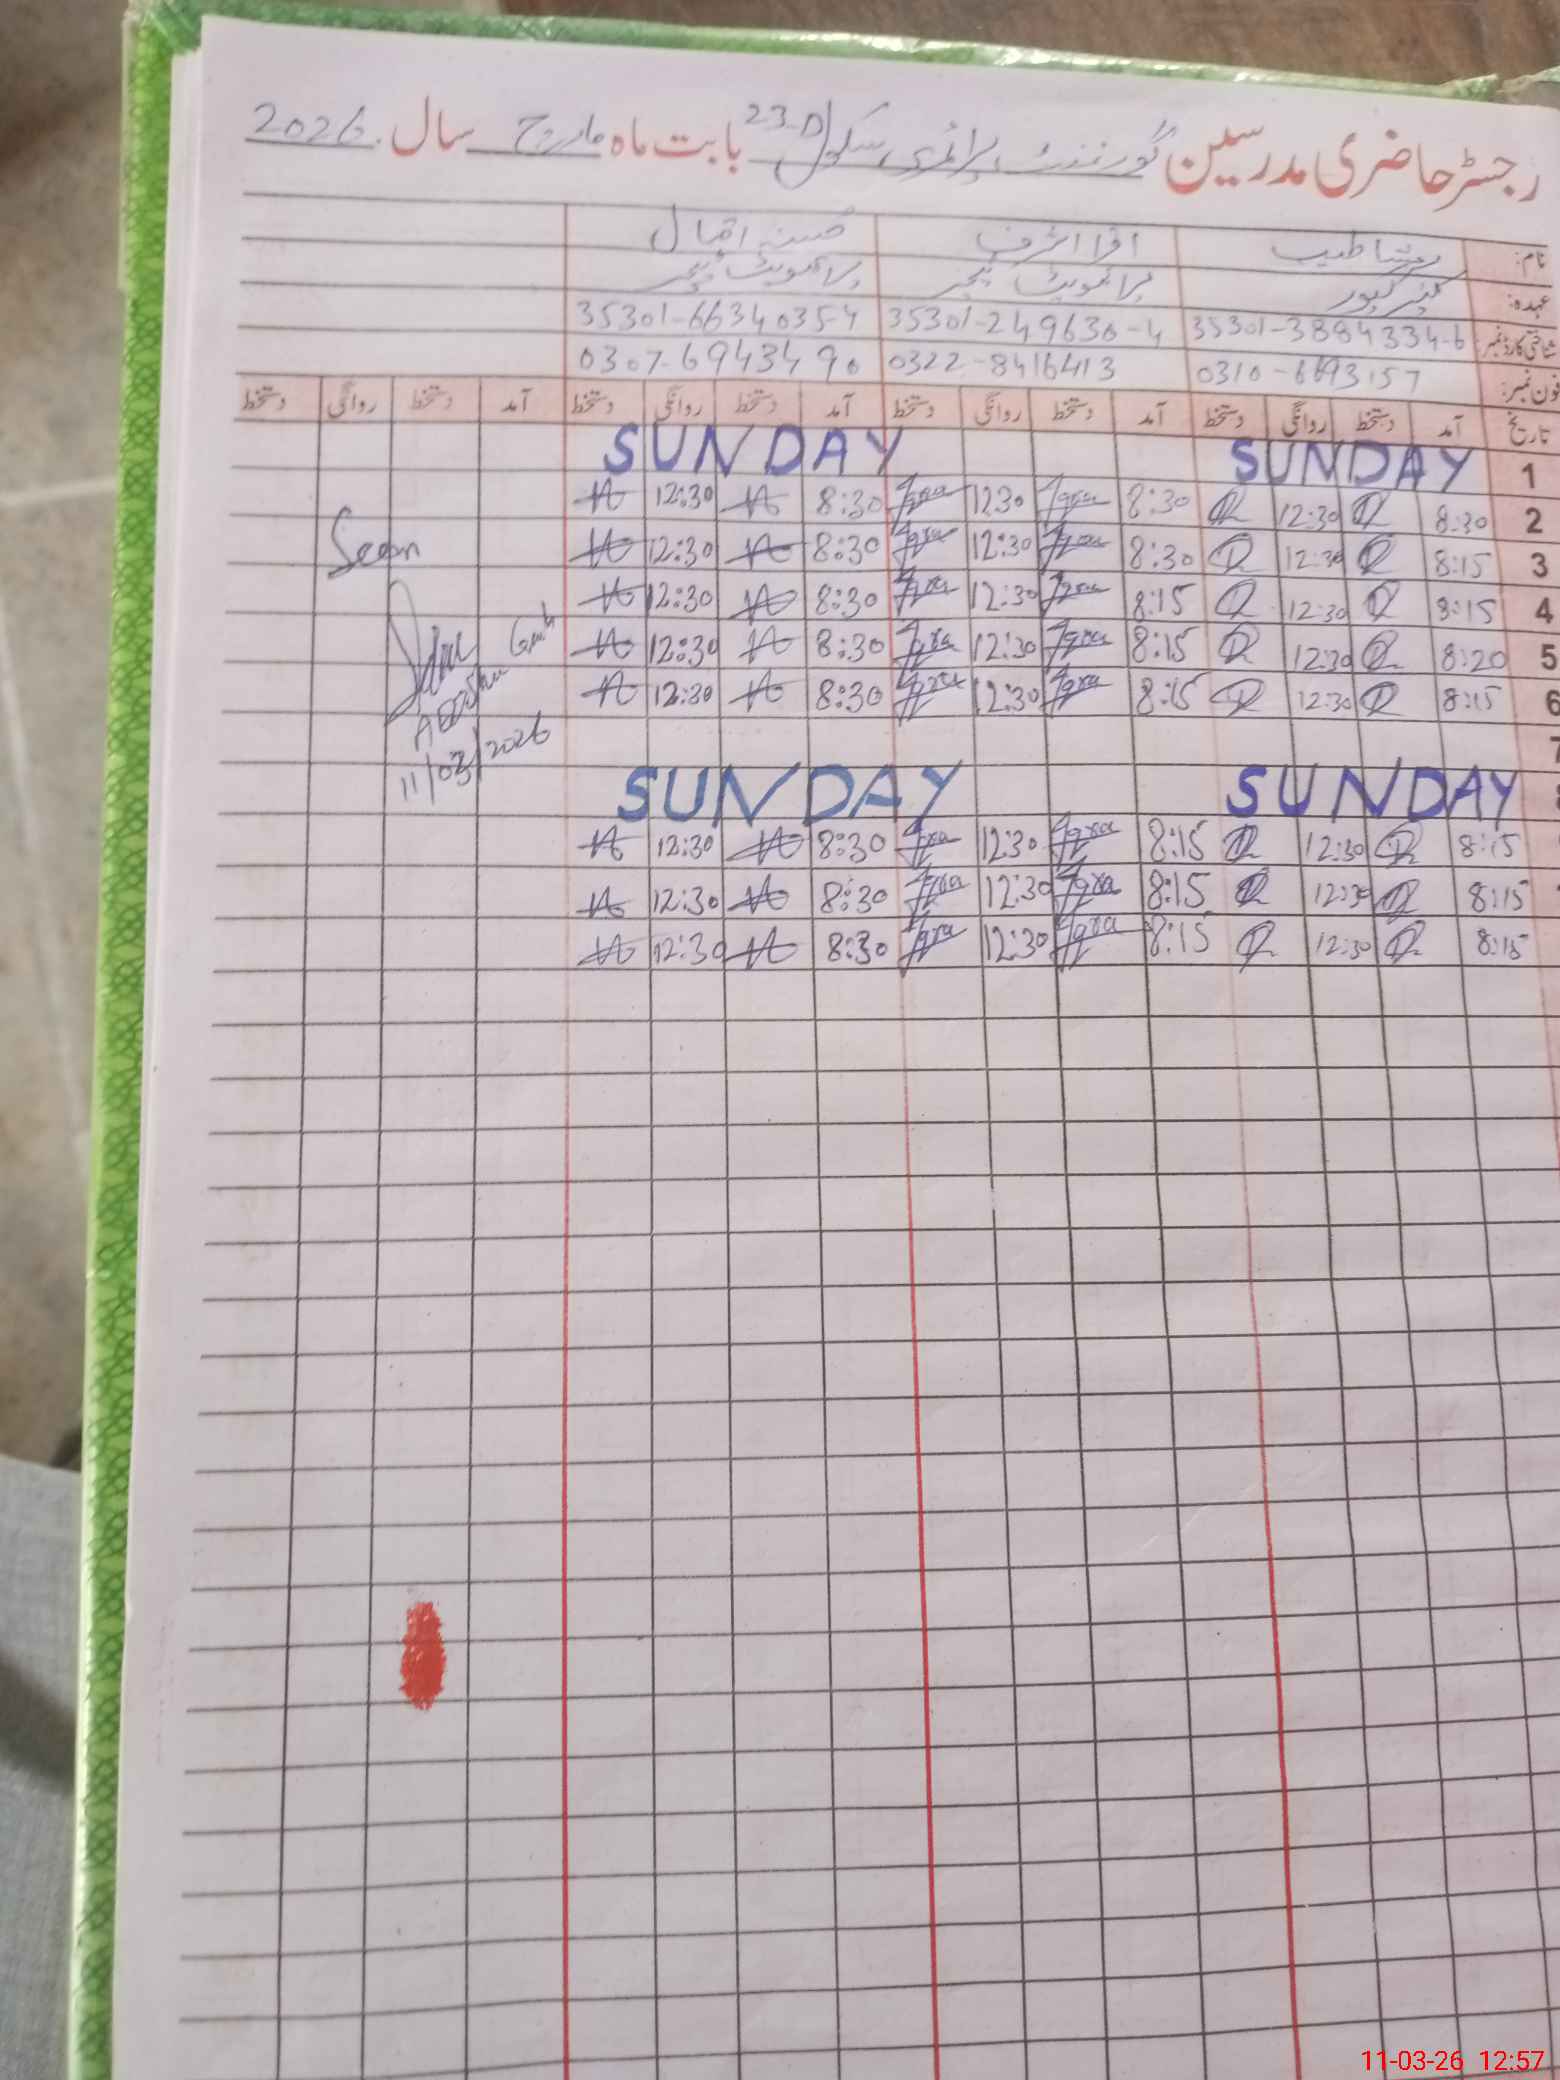 رجسٹر حاضری مدرسین گورنمنٹ پرائمری سکول 23-D بابت ماہ مارچ سال 2026
نام: اقرا اشرف اقبال
عہدہ: پرائیویٹ ٹیچر پرائیویٹ ٹیچر
شناختی کارڈ نمبر: 35301-3884334-6 35301-249630-4 35301-6634035-4
فون نمبر: 0310-6693157 0322-8416413 0307-6943490
تاریخ آمد دستخط روانگی دستخط آمد دستخط روانگی دستخط آمد دستخط روانگی دستخط آمد دستخط روانگی دستخط
1 SUNDAY SUNDAY
2 8:30 12:30 8:30 Iqra 1230 Iqra 8:30 12:30
3 8:15 12:30 8:30 Iqra 12:30 Iqra 8:30 12:30
4 8:15 12:30 8:15 Iqra 12:30 Iqra 8:30 12:30
5 8:20 12:30 8:15 Iqra 12:30 Iqra 8:30 12:30
6 8:15 12:30 8:15 Iqra 12:30 Iqra 8:30 12:30
7
SUNDAY SUNDAY
8:15 12:30 8:15 Iqra 12:30 Iqra 8:30 12:30
8:15 12:30 8:15 Iqra 12:30 Iqra 8:30 12:30
8:15 12:30 8:15 Iqra 12:30 Iqra 8:30 12:30
Seen
11/03/2026
11-03-26 12:57